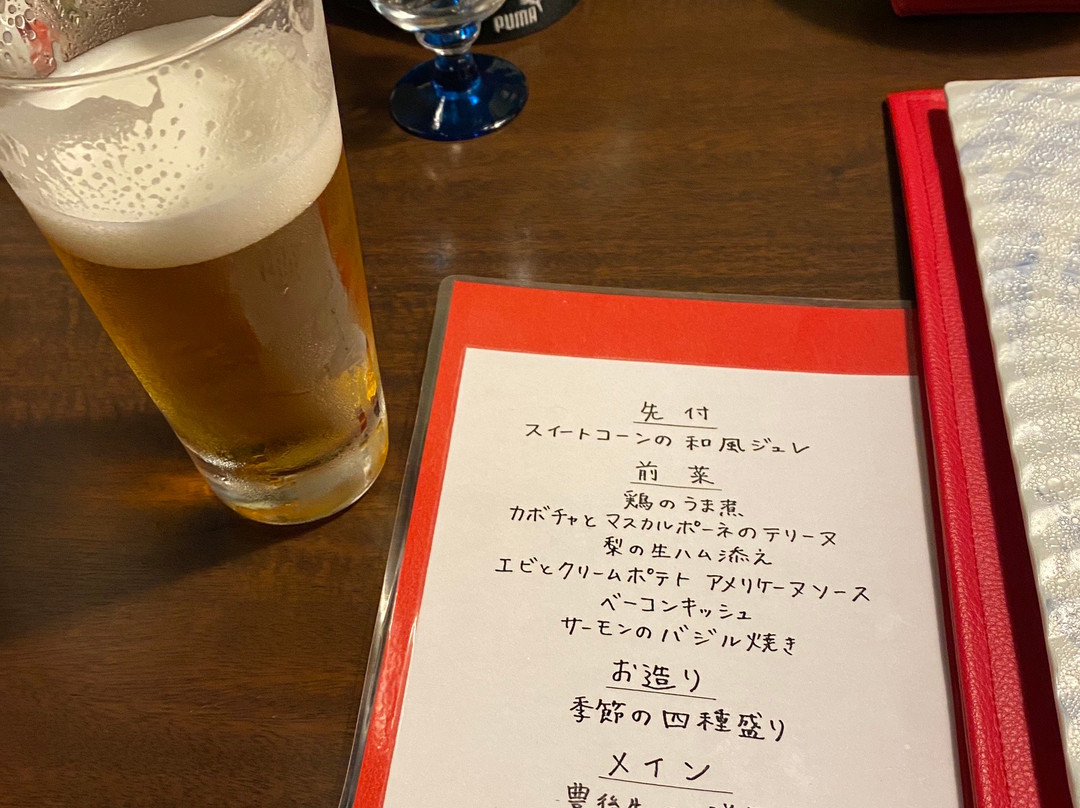 PUMA
先付
スイートコーンの和風ジュレ
前菜
鶏のうま煮
カボチャとマスカルポーネのテリーヌ
梨の生ハム添え
エビとクリームポテト アメリケーヌソース
ベーコンキッシュ
サーモンのバジル焼き
お造り
季節の四種盛り
メイン
豊後牛